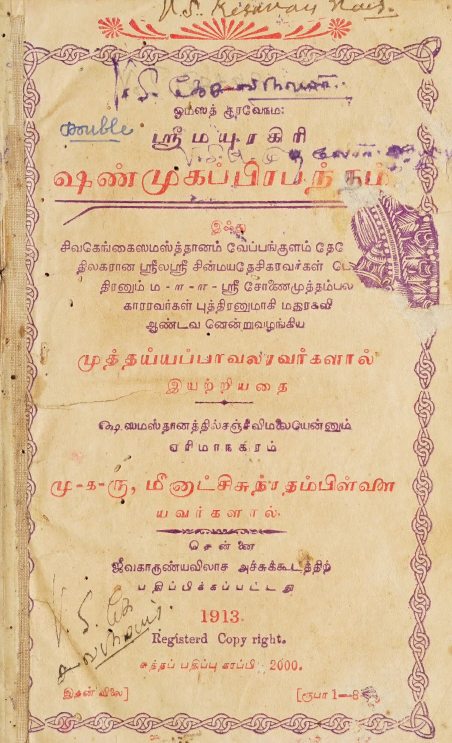 V. S. Kesavan Nair.
V. S. கேசவ
ஓம்ஸத் குரவேநம:
double
ஸ்ரீமயூரகிரி
ஷண்முகப்பிரபந்தம்
இஃது
சிவகெங்கைஸமஸ்த்தானம் வேப்பங்குளம் தே
திலகரான ஸ்ரீலஸ்ரீ சின்மயதேசிகரவர்கள்
திரனும் ம-ா-ா-ஸ்ரீ சோணைமுத்தம்பல
காரரவர்கள் புத்திரனுமாகி மதுரகவி
ஆண்டவ னென்றுவழங்கிய
முத்தய்யப்பாவலரவர்களால்
இயற்றியதை
ஷெ ஸமஸ்தானத்தில்சஞ்சீவிமலையென்னும்
ஏரிமாநகரம்
மு-க-ரு, மீனாட்சிசுந்தரதம்பிள்ளை
யவர்களால்
சென்னை
ஜீவகாருண்யவிலாச அச்சுக்கூடத்திற்
பதிப்பிக்கப்பட்டது
1913.
Registerd Copy right.
சுத்தப் பதிப்பு காப்பி 2000.
V. S. கே
இதன் விலை] [ரூபா 1—8